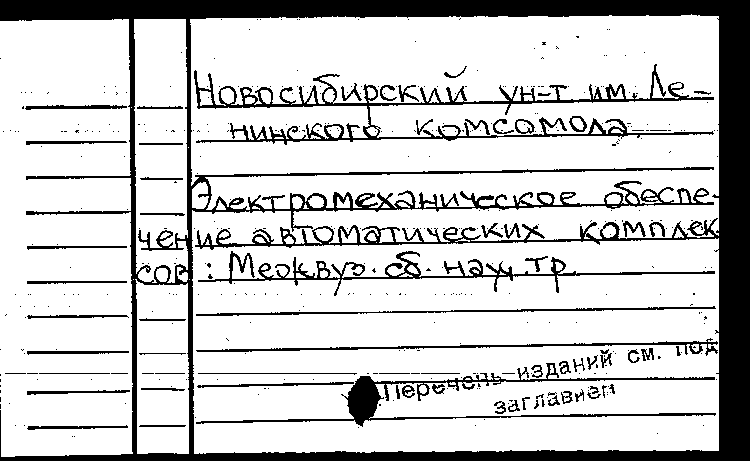 Новосибирский ун-т им. Ле-
нинского комсомола.
Электромеханическое обеспе-
чение автоматических комплек
сов : Межвуз. сб. науч. тр.
Перечень изданий см. под
заглавием